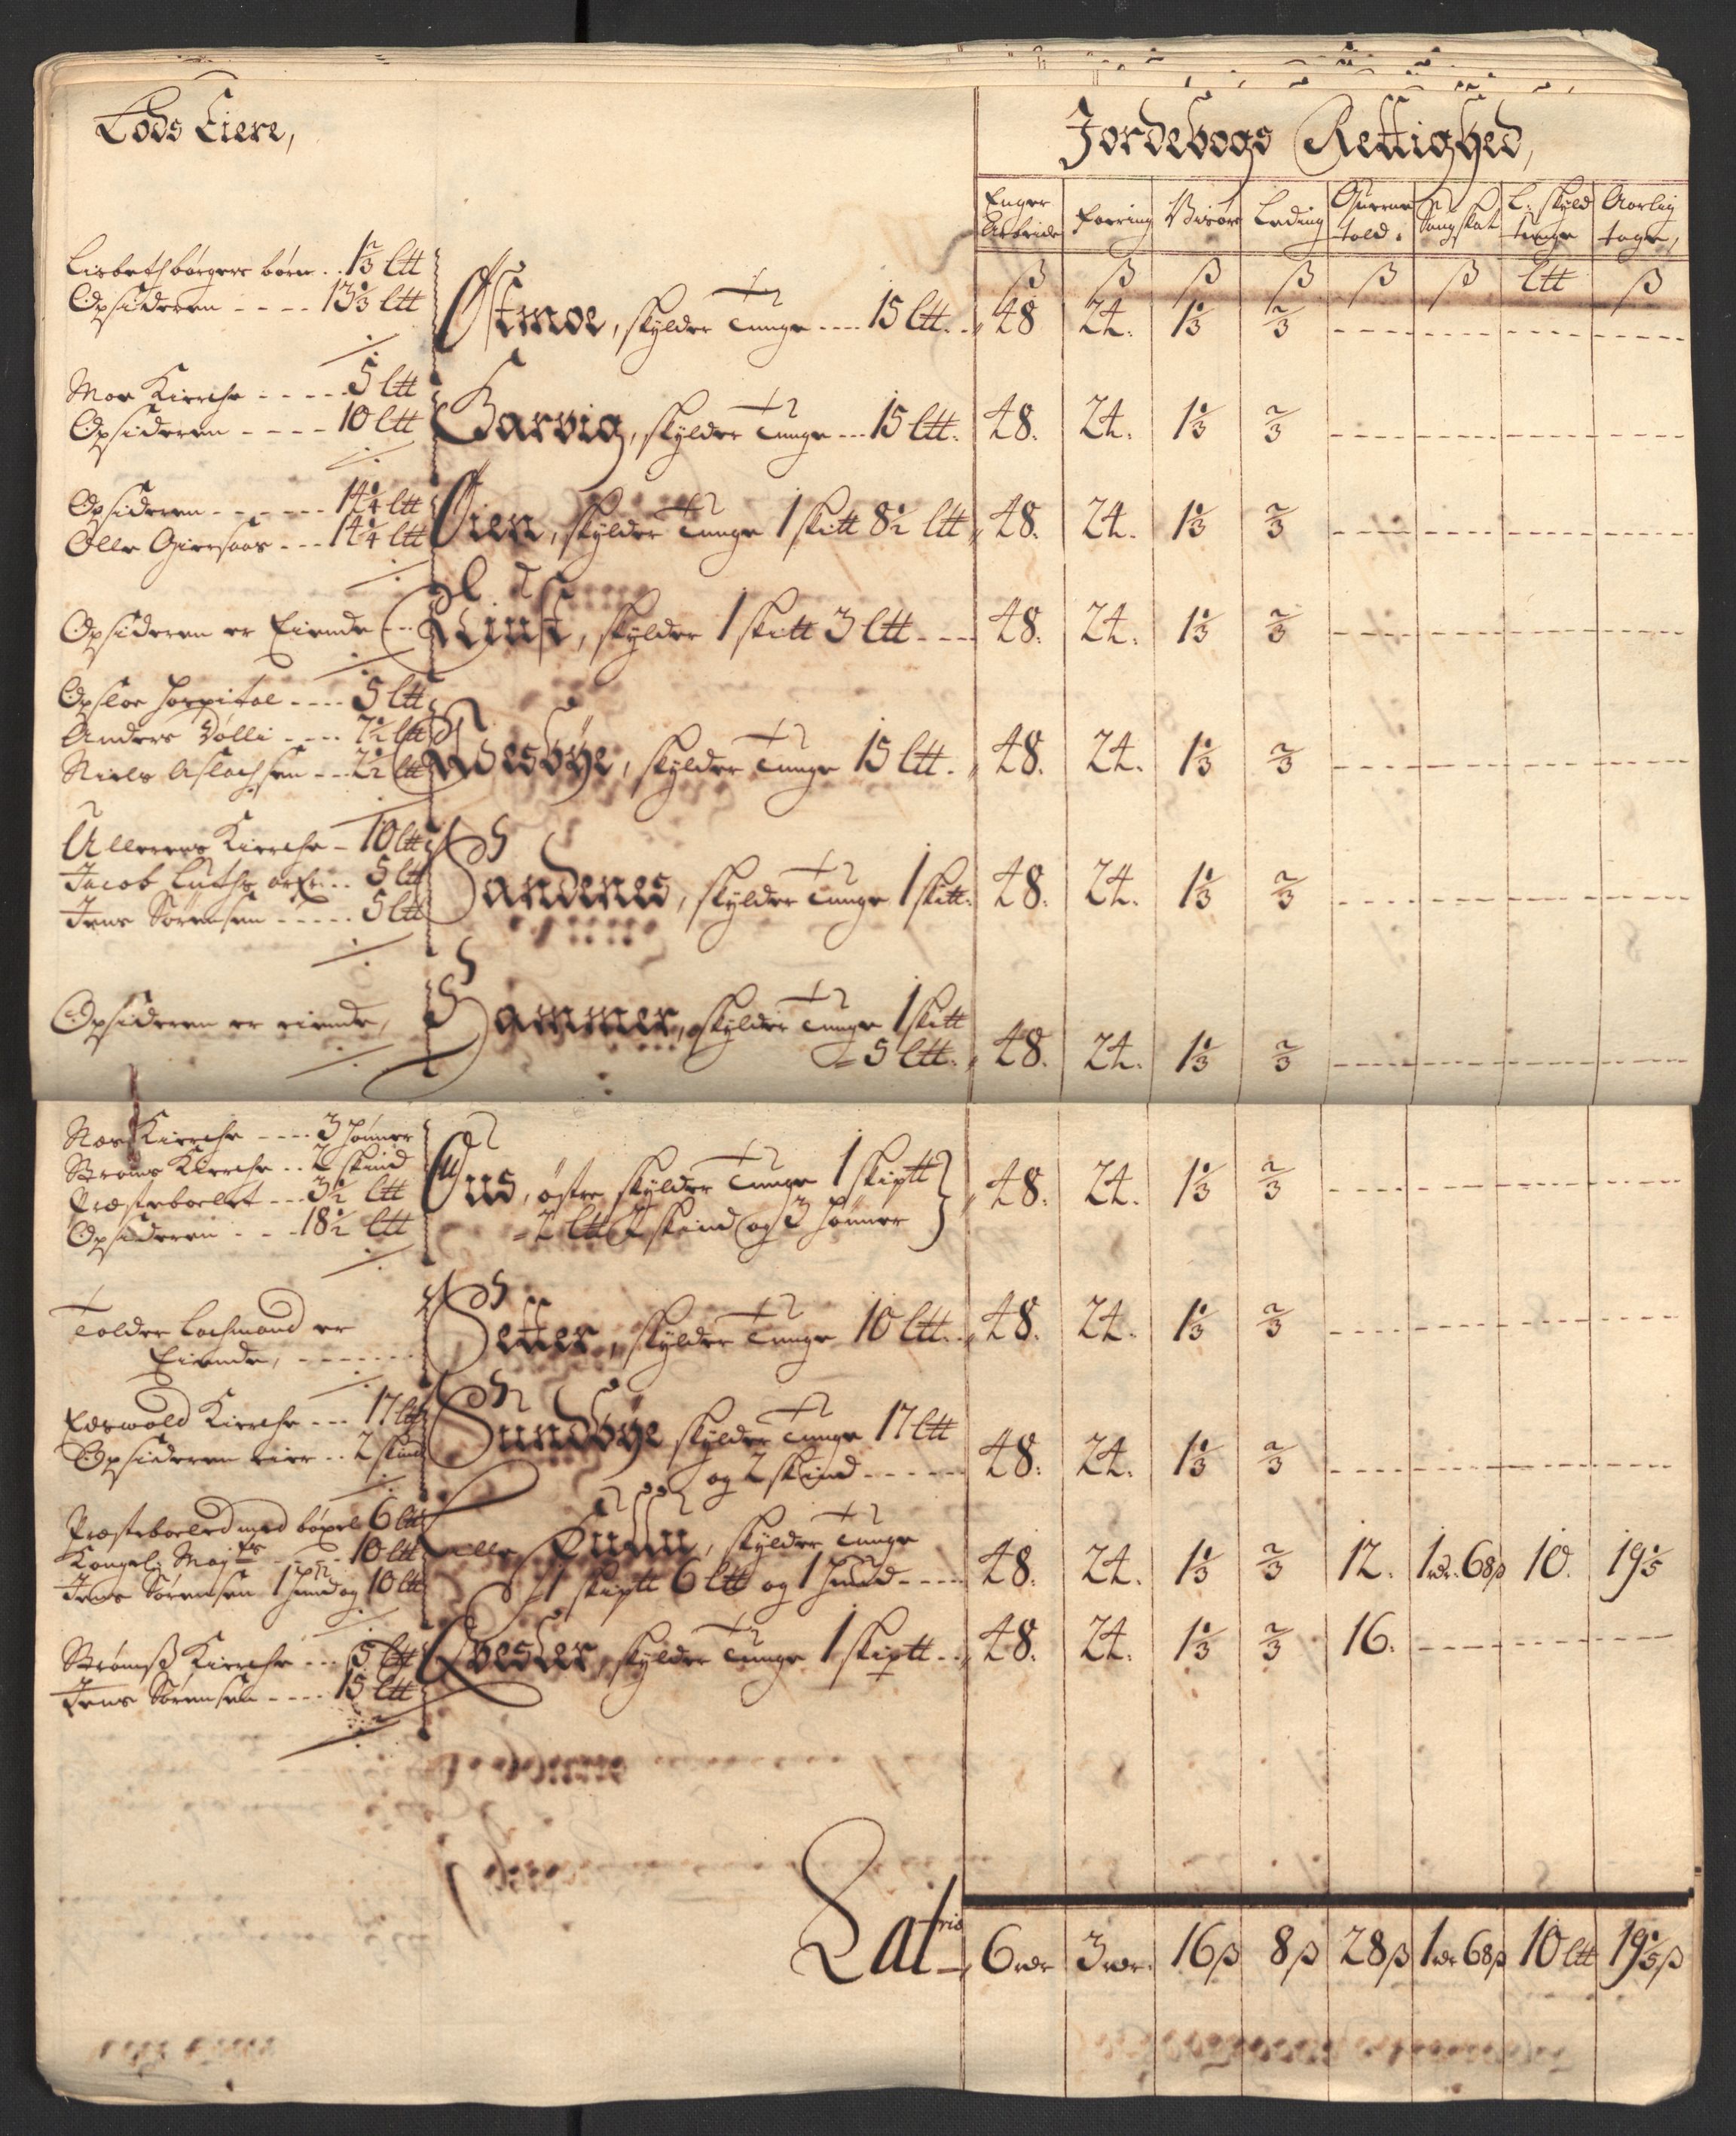 Lods Eiere,
Jordebogs Rettighed,
Enger Arbeide
Foering
Visøre
Leding
Querne told.
Saug skat
L: skyld tunge
Aarlig tage,
ß ß ß ß ß ß ltt ß
Lisbeth børgers børn .. 1 2/3 ltt
Opsideren - - - - 13 1/3 ltt
Østmoe, skylder Tunge .... 15 ltt. 48 24. 1 1/3 2/3
Moe Kirche - - - - 5 ltt
Opsideren - - - - 10 ltt
Garvig, skylder Tunge ... 15 ltt. 48. 24. 1 1/3 2/3
Opsideren - - - - 14 1/4 ltt
Olle Giersaas - - - 14 1/4 ltt
Øien, skylder Tunge 1 skitt 8 1/2 ltt 48. 24. 1 1/3 2/3
Opsideren er Eiende - -
Rust, skylder 1 skitt 3 ltt - - - 48. 24. 1 1/3 2/3
Opsloe Hospital - - - - 5 ltt
Anders Dølli - - - - 7 1/2 ltt
Niels Aslachsen - - - 2 1/2 ltt
Næsbye, skylder Tunge 15 ltt. 48. 24. 1 1/3 2/3
Ullerens Kirche - 10 ltt
Jacob Luths arf: .. 5 ltt
Jens Sørensen - - - - - 5 ltt
Sandenes, skylder Tunge 1 skitt. 48. 24. 1 1/3 2/3
Opsideren er eiende,
Hammer, skylder Tunge 1 skitt
5 ltt. 48. 24. 1 1/3 2/3
Næs Kirche - - - - 3 hønner
Strøms Kirche .. 2 skind
Præsteboelet - - - 3 1/2 ltt
Opsideren - - - 18 1/2 ltt
Huus, østre skylder Tunge 1 skiptt
2 ltt 2 skind og 3 hønner 48. 24. 1 1/3 2/3
Tolder Lachmand er
Eiende, - - - - - -
Setter, skylder Tunge 10 ltt. 48. 24. 1 1/3 2/3
Edswold Kirche - - - 17 ltt
Opsideren eier .. 2 skind
Sundbye skylder Tunge 17 ltt
og 2 skind - - - - - 48. 24. 1 1/3 2/3
Præsteboeled med bøxel 6 ltt
Kongeli: Maj:ts - - - 10 ltt
Jens Sørensen 1 hund og 10 ltt
Lille, skylder Tunge
1 skiptt 6 ltt og 1 hund - - - - 48. 24. 1 1/3 2/3 12. 1 rdr. 68 ß 10. 19 1/5
Strømß Kirche - - - 5 ltt
Jens Sørensen - - - - 15 ltt
Qvester, skylder Tunge 1 skiptt. 48. 24. 1 1/3 2/3 16.
Latris 6 rdr 3 rdr. 16 ß 8 ß 28 ß 1 rdr 68 ß 10 ltt 19 1/5 ß